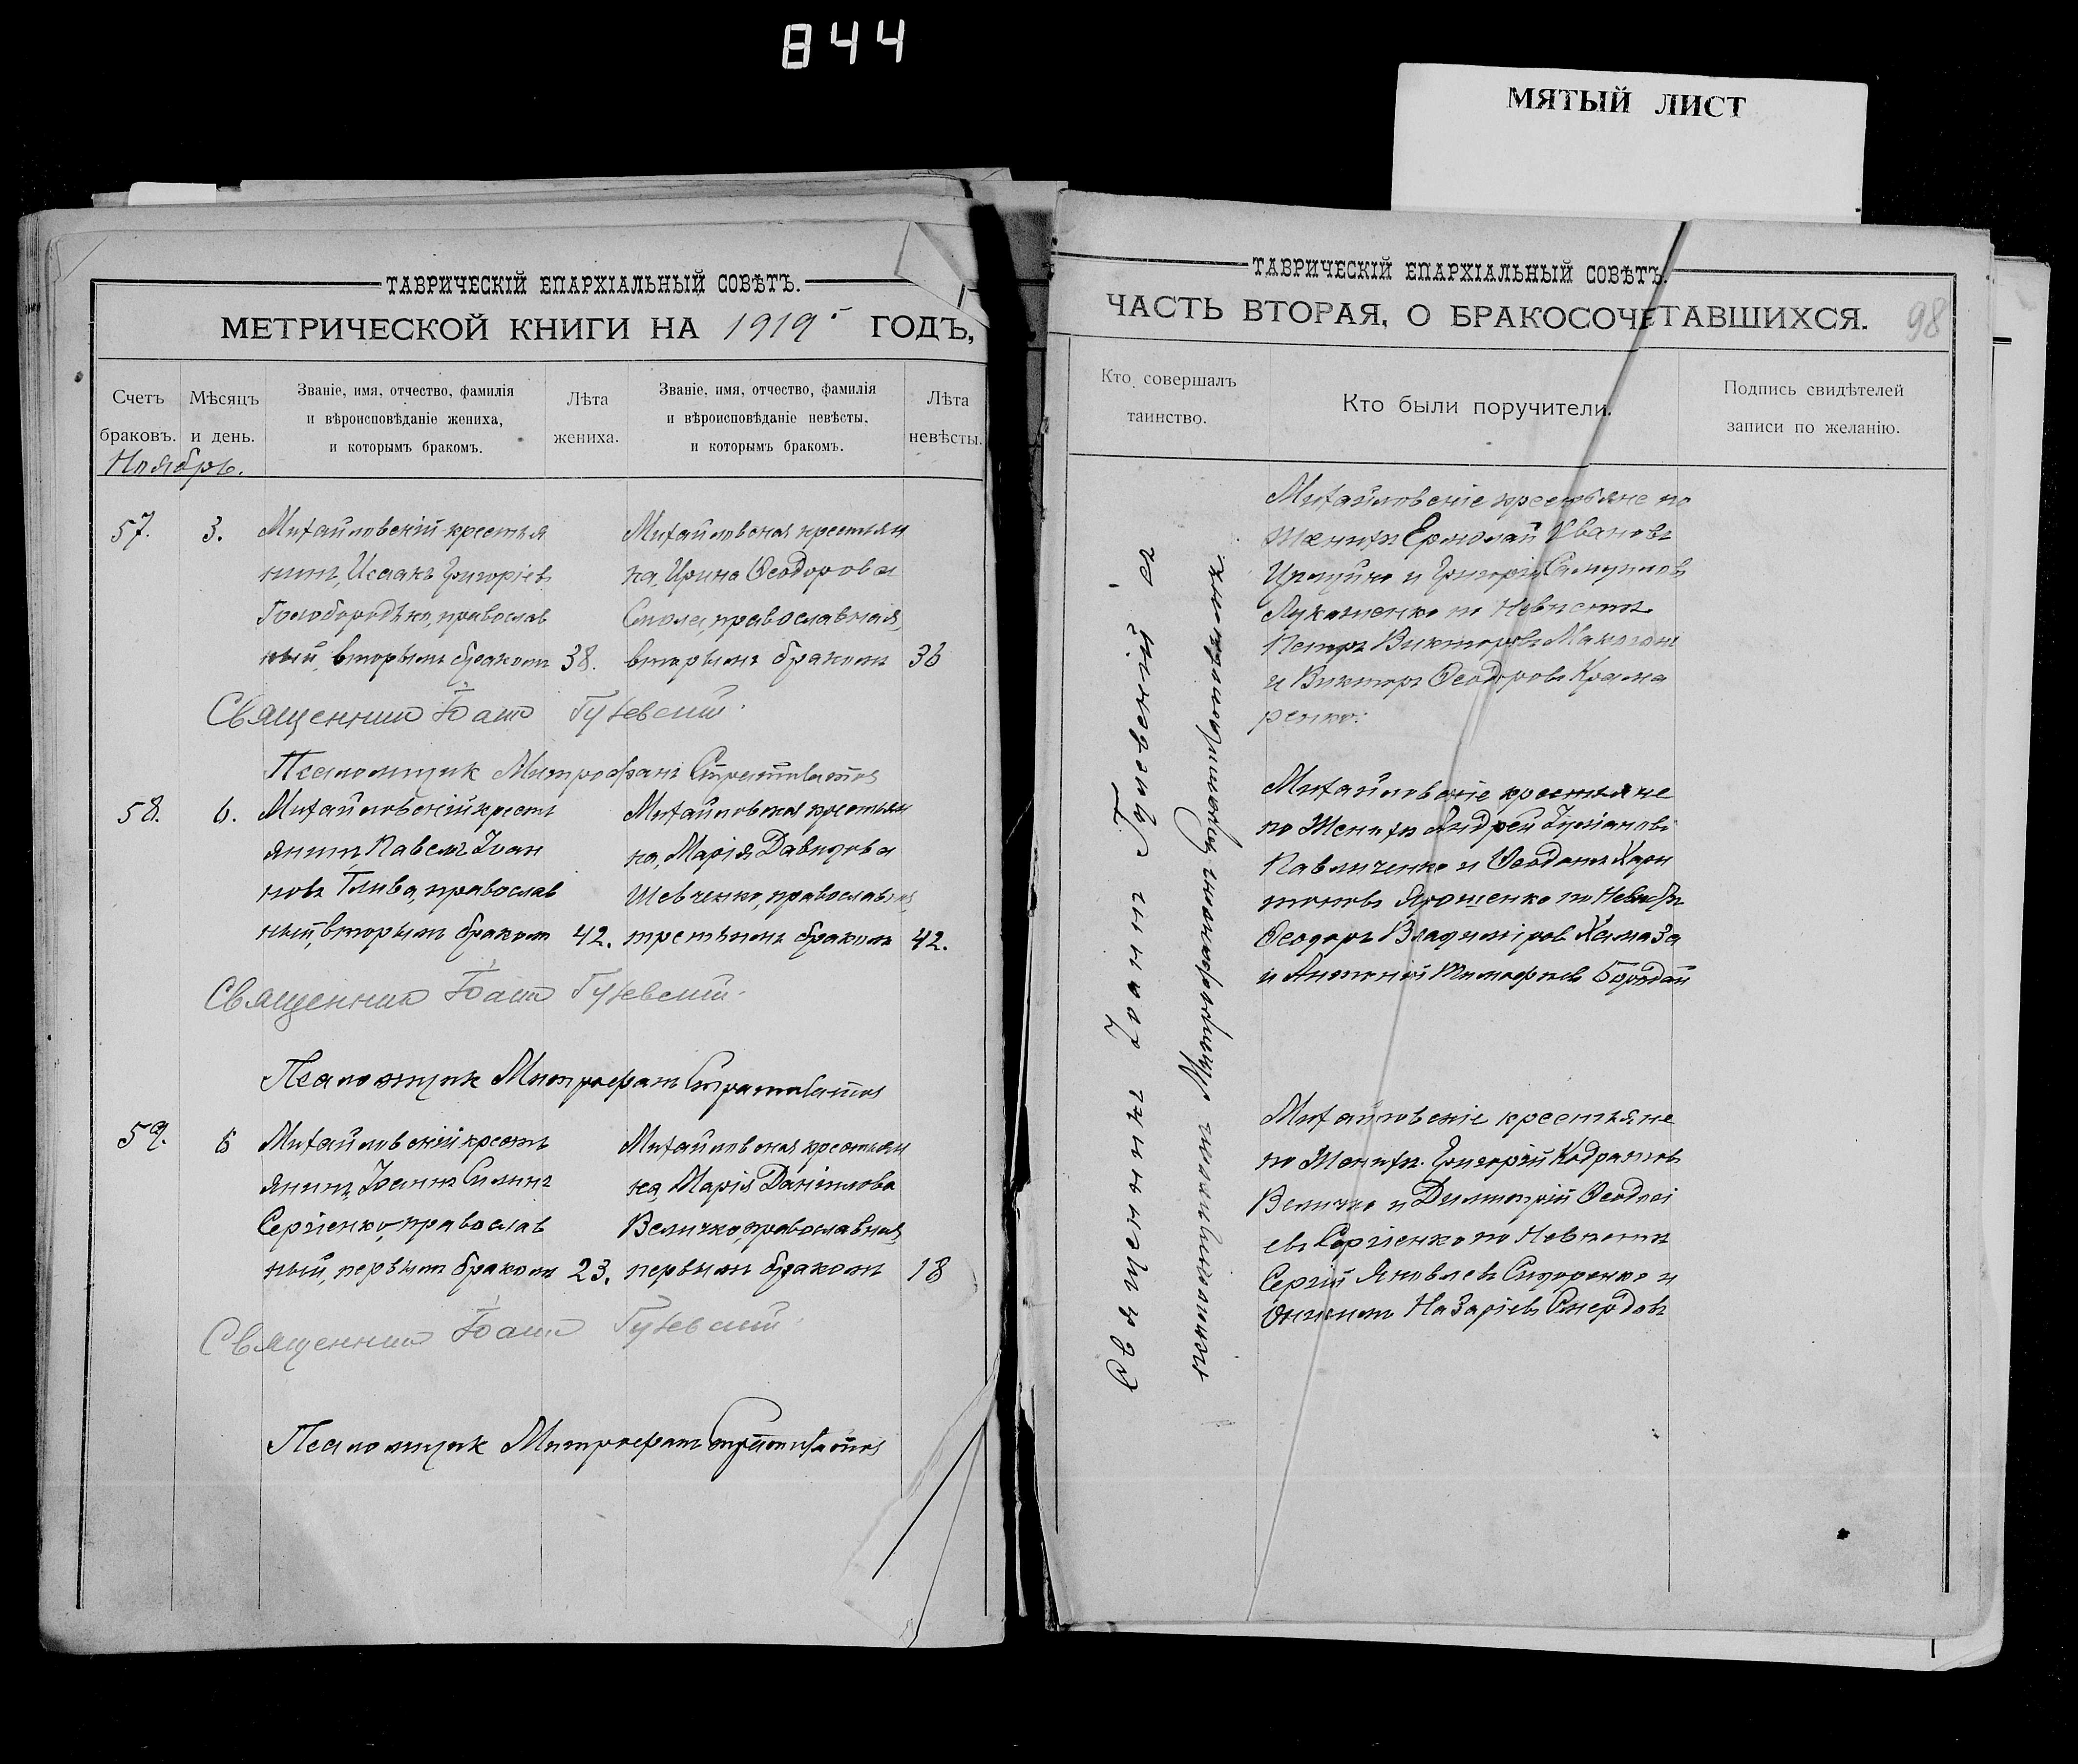 844
МЯТЫЙ ЛИСТ
ТАВРИЧЕСКІЙ ЕПАРХІАЛЬНЫЙ СОВѢТЪ.
МЕТРИЧЕСКОЙ КНИГИ НА 1919 ГОДЪ,
Счетъ браковъ.
Мѣсяцъ и день.
Званіе, имя, отчество, фамилія
и вѣроисповѣданіе жениха,
и которымъ бракомъ.
Лѣта
жениха.
Званіе, имя, отчество, фамилія
и вѣроисповѣданіе невѣсты,
и которымъ бракомъ.
Лѣта
невѣсты.
Ноябрь.
57.
3.
Михайловскій крестья
нинъ, Исаакъ Григоріевъ
Голобородько, православ
ный, вторымъ бракомъ
38.
Михайловская крестьян
ка, Ирина Ѳеодорова
православная,
вторымъ бракомъ
36
Священникъ Іоаннъ
Псаломщик Митрофанъ
58.
6.
Михайловскій кресть
янинъ, Павелъ Іоан
новъ Глива, православ
ный, вторымъ бракомъ
42.
Михайловская крестьян
ка, Марія Давидова
Шевченко, православная,
третьимъ бракомъ
42.
Священникъ Іоаннъ
Псаломщик Митрофанъ
59.
6
Михайловскій кресть
янинъ, Іоаннъ
Сергіенко, православ
ный, первымъ бракомъ
23.
Михайловская крестьян
ка, Марія Даніилова
Величко, православная,
первымъ бракомъ
18
Священникъ Іоаннъ
Псаломщик Митрофанъ
ТАВРИЧЕСКІЙ ЕПАРХІАЛЬНЫЙ СОВѢТЪ.
ЧАСТЬ ВТОРАЯ, О БРАКОСОЧЕТАВШИХСЯ.
98
Кто совершалъ
таинство.
Кто были поручители.
Подпись свидѣтелей
записи по желанію.
Священникъ Іоаннъ съ
псаломщикомъ Митрофаномъ
Михайловскіе крестьяне по
Женихѣ Ермолай Ивановъ
и Григорій Самуиловъ
Лукашенко по Невѣстѣ
Петръ Викторовъ
и Викторъ Ѳеодоровъ Крама
ренко.
Михайловскіе крестьяне
по Женихѣ Андрей
Павличенко и Хари
тоновъ Ярошенко по
Ѳеодоръ Владиміровъ Хамаза
и Антоній Тимофѣевъ Бородай
Михайловскіе крестьяне
по Женихѣ Григорій
Величко и Димитрій
евъ Сергіенко по Невѣстѣ
Сергій Яковлевъ Сидоренко и
Назаріевъ